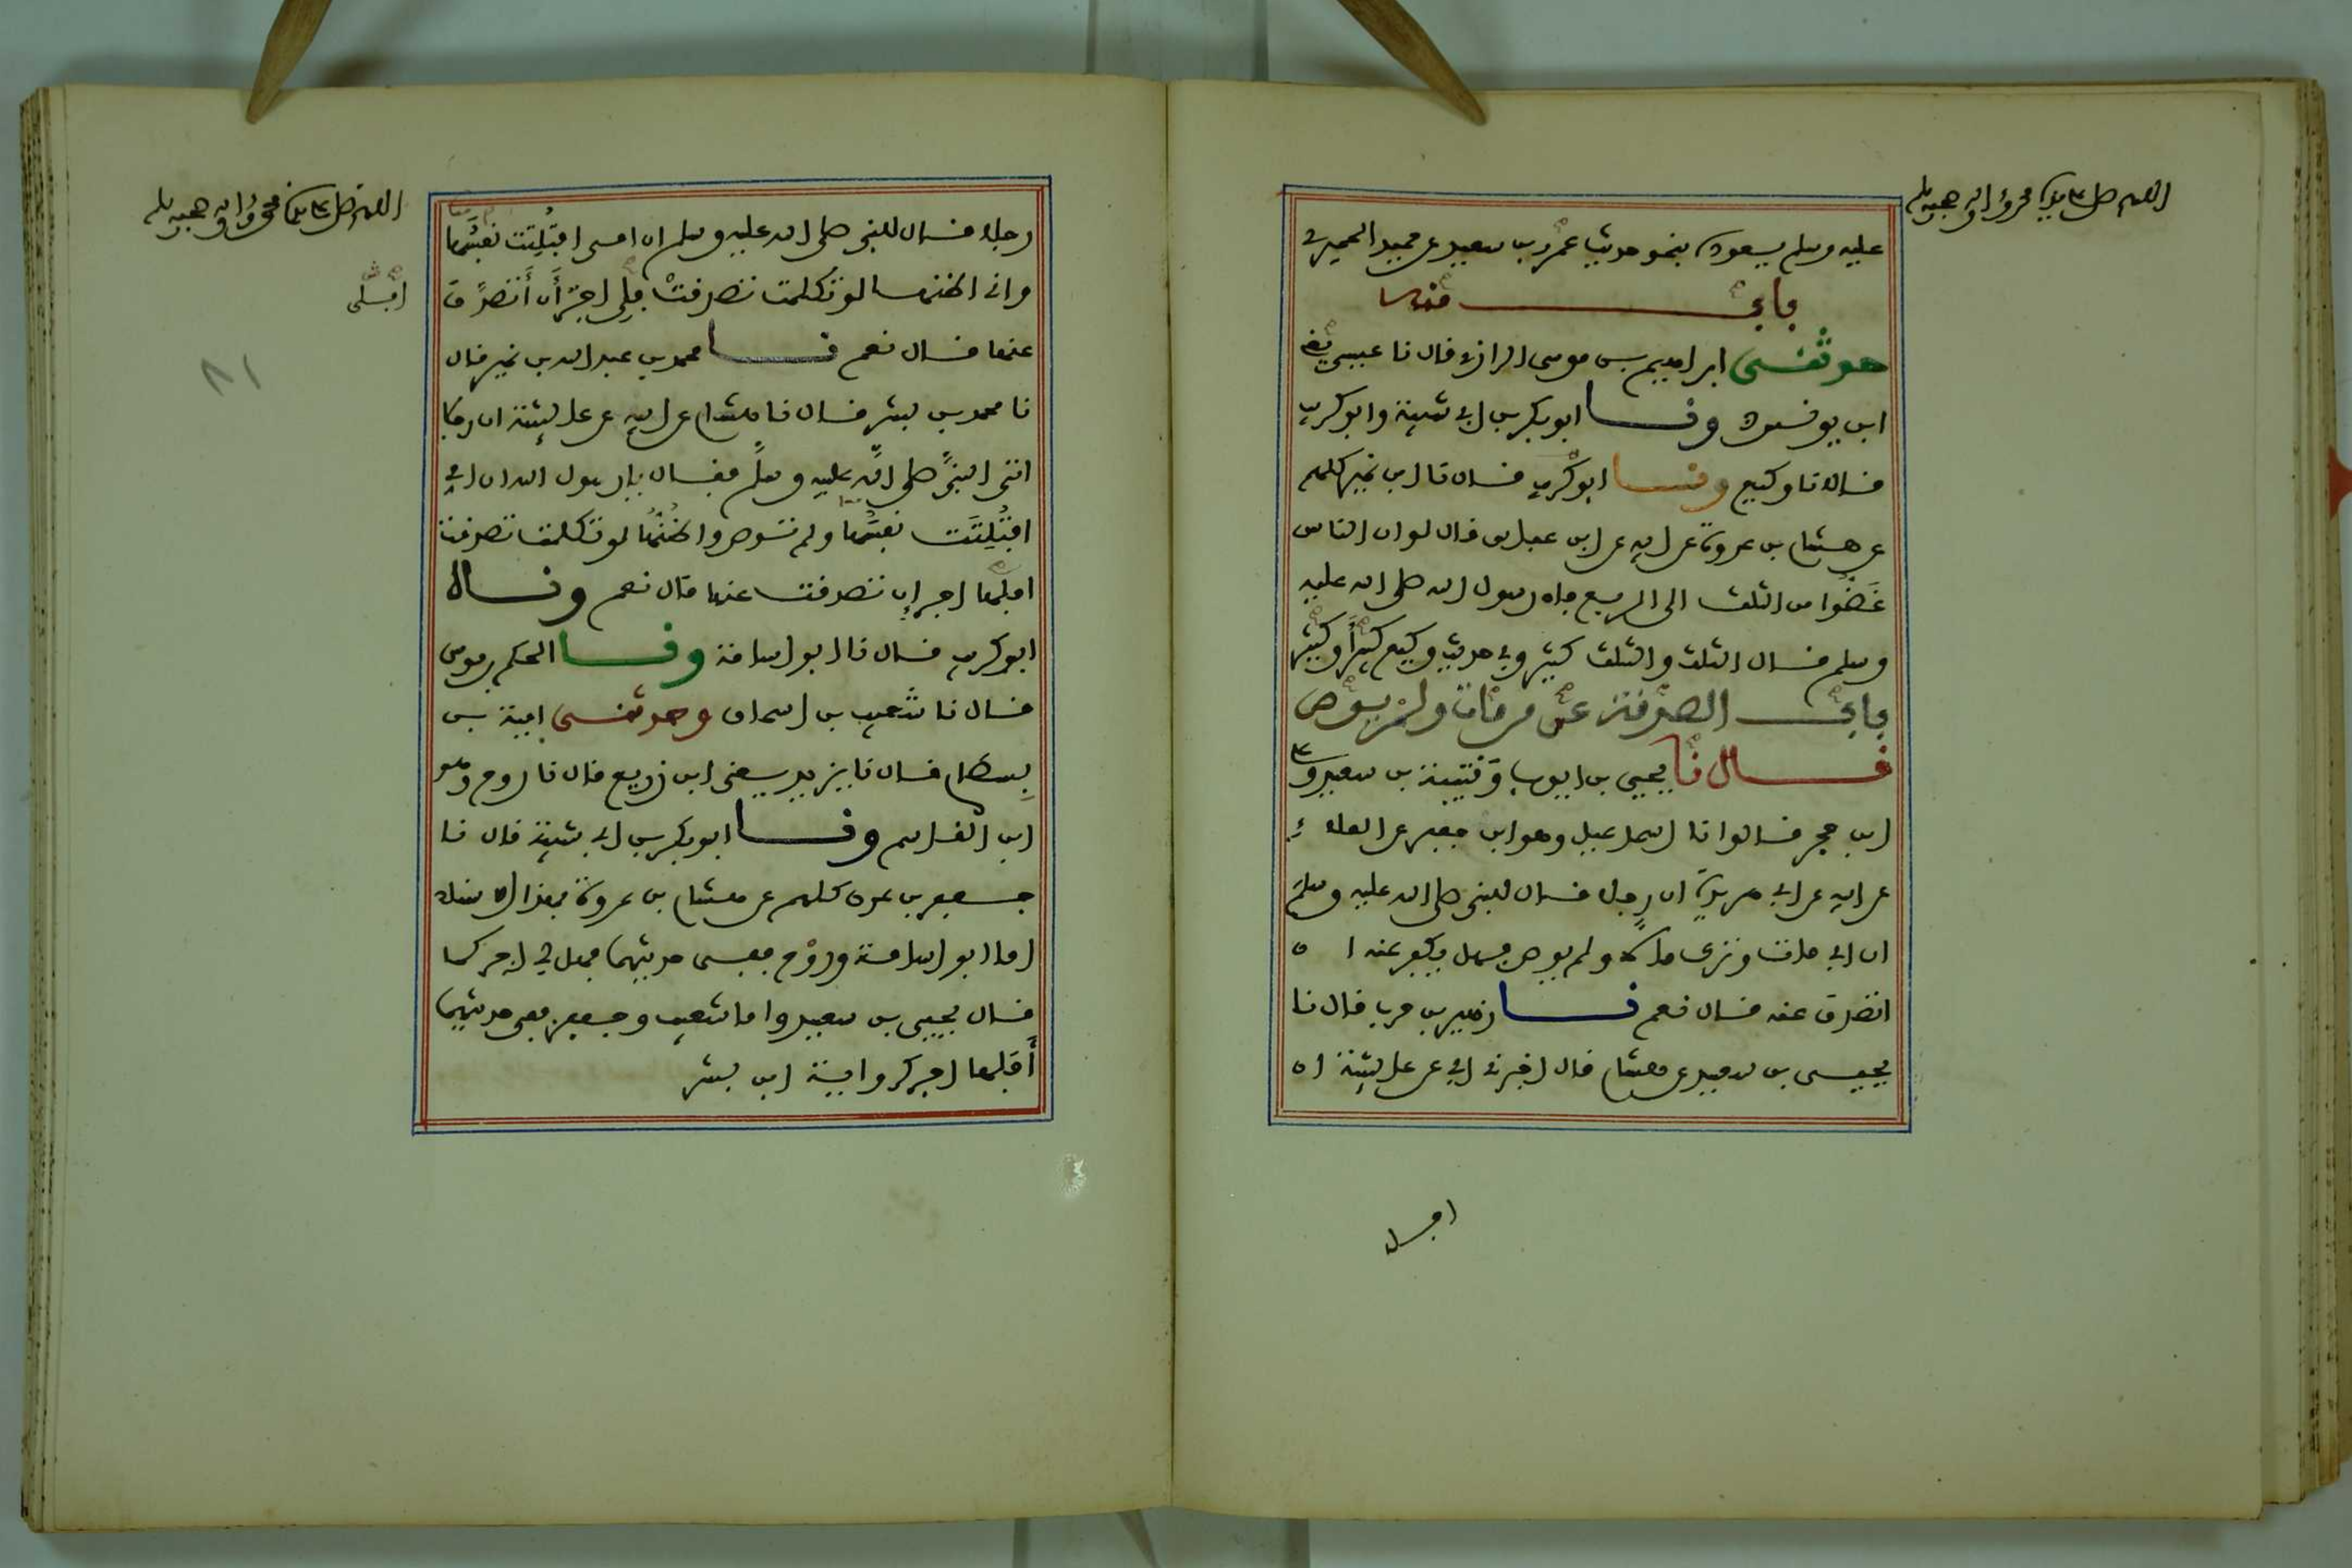 اللهم صل على سيدنا محمد واله وصحبه وسلم
عليه وسلم يعوده بنحو حديث عمرو بن سعيد عن حميد الحميري
باب منه
حدثني ابراهيم بن موسى الرازي قال نا عيسى يعني
ابن يونس ونا ابو بكر بن ابي شيبة وابو كريب
قالا نا وكيع ونا ابو كريب قال نا ابن نمير كلهم
عن هشام بن عروة عن ابيه عن ابن عباس قال لو ان الناس
غضوا من الثلث الى الربع فان رسول الله صلى الله عليه
وسلم قال الثلث والثلث كثير وفي حديث وكيع كبير او كثير
باب الصدقة عن من مات ولم يوص
قال نا يحيى بن ايوب وقتيبة بن سعيد وعلي
ابن حجر قالوا نا اسماعيل وهو ابن جعفر عن العلاء
عن ابيه عن ابي هريرة ان رجلا قال للنبي صلى الله عليه وسلم
ان ابي مات وترك مالا ولم يوص فهل يكفر عنه ان
اتصدق عنه قال نعم نا زهير بن حرب قال نا
يحيى بن سعيد عن هشام قال اخبرني ابي عن عائشة ان
اللهم صل على سيدنا محمد واله وصحبه وسلم
رجلا قال للنبي صلى الله عليه وسلم ان امي افتلتت نفسها
واني اظنها لو تكلمت تصدقت فلي اجر أن أتصدق
عنها قال نعم نا محمد بن عبد الله بن نمير قال
نا محمد بن بشر قال نا هشام عن ابيه عن عائشة ان رجلا
اتى النبي صلى الله عليه وسلم فقال يا رسول الله ان امي
افتلتت نفسها ولم توص واظنها لو تكلمت تصدقت
افلها اجر إن تصدقت عنها قال نعم وناه
ابو كريب قال نا ابو اسامة ونا الحكم بن موسى
قال نا شعيب بن اسحاق وحدثني امية بن
بسطام قال نا يزيد يعني ابن زريع قال نا روح وهو
ابن القاسم ونا ابو بكر بن ابي شيبة قال نا
جعفر بن عون كلهم عن هشام بن عروة بهذا الاسناد
اما ابو اسامة وروح ففي حديثهما فهل لي اجر كما
قال يحيى بن سعيد واما شعيب وجعفر ففي حديثهما
أفلها اجر كرواية ابن بشر
٨١